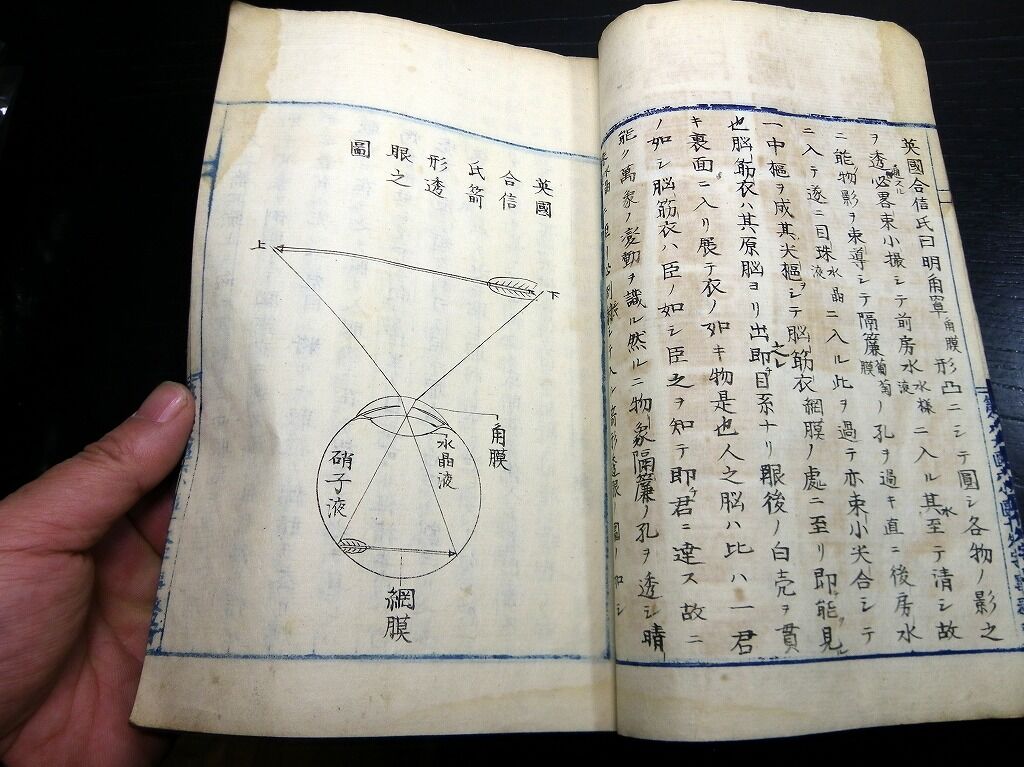 英國合信氏曰明角罩角膜形凸ニシテ圓シ各物ノ影之
ヲ透必畧束小撮シテ前房水液水様ニ入ル其至テ清シ故
ニ能物影ヲ束導シテ隔簾葡萄膜ノ孔ヲ過キ直ニ後房水
ニ入テ遂ニ目珠水晶液ニ入ル此ヲ過テ亦束小尖合シテ
一中樞ヲ成其尖樞シテ脳筋衣網膜ノ處ニ至リ即能見
也脳筋衣ハ其原脳ヨリ出即目系ナリ眼後ノ白壳ヲ貫
キ裏面ニ入リ展テ衣ノ如キ物是也人之脳ハ比ハ一君
ノ如シ脳筋衣ハ臣ノ如シ臣之ヲ知テ即君ニ達ス故ニ
能ク萬象ノ変動ヲ識ル然ルニ物象隔簾ノ孔ヲ透シ晴
英國
合信
氏箭
形透
眼之
圖
上
下
角膜
水晶液
硝子液
網膜